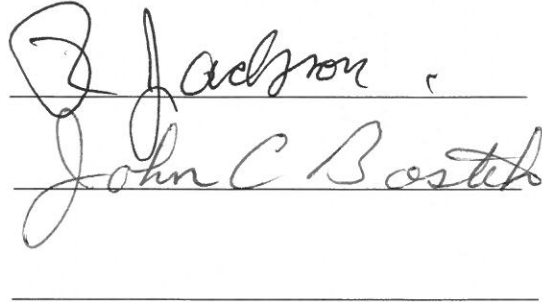 Jackson.
John C Bostek